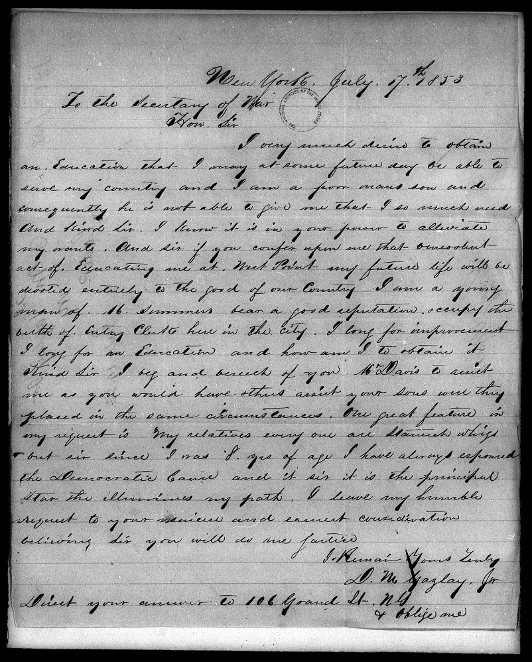 New York. July. 17.th 1853
To the Secretary of War
Hon. Sir
I very much desire to obtain
an Education that I may at some future day be able to
serve my country and I am a poor mans son and
consequently he is not able to give me that I so much need
And Kind Sir. I know it is in your power to alleviate
my wants. And sir if you confer upon me that benevolent
act of. Educating me at. West Point my future life will be
devoted entirely to the good of our Country I am a young
man of. 16. summers bear a good reputation. occupy the
birth of. Entry Clerk here in the city. I long for improvement
I long for an Education and how am I to obtain it
Kind Sir I beg and beseech of you Mr Davis to assist
me as you would have others assist your sons were they
placed in the same circumstances. One great feature in
my request is My relatives every one are staunch whigs
but sir since I was 8. yrs of age I have always espoused
the Democratic Cause and it sir it is the principal
Star the illumines my path. I leave my humble
request to your and earnest consideration
believing Sir you will do me justice
I. Remain Yours
D. M. Gazlay. Jr
Direct your answer to 106 Grand St. NY
& oblige me